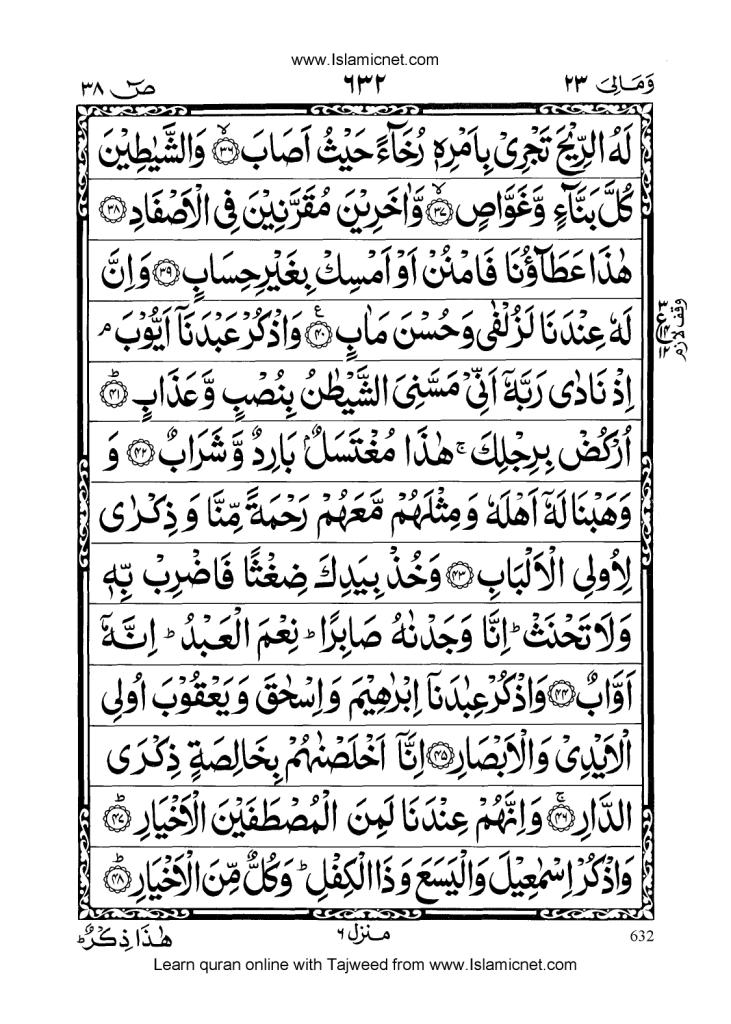 www.Islamicnet.com
وَمَالِیَ ٢٣ ٦٣٢ صٓ ٣٨
لَهُ الرِّيْحَ تَجْرِيْ بِاَمْرِهٖ رُخَآءً حَيْثُ اَصَابَ ﴿۳۶﴾ۙ وَالشَّيٰطِيْنَ
كُلَّ بَنَّآءٍ وَّغَوَّاصٍ ﴿۳۷﴾ۙ وَّاٰخَرِيْنَ مُقَرَّنِيْنَ فِي الْاَصْفَادِ ﴿۳۸﴾
هٰذَا عَطَآؤُنَا فَامْنُنْ اَوْ اَمْسِكْ بِغَيْرِ حِسَابٍ ﴿۳۹﴾ وَاِنَّ
لَهٗ عِنْدَنَا لَزُلْفٰى وَحُسْنَ مَاٰبٍ ﴿۴۰﴾ع وَاذْكُرْ عَبْدَنَآ اَيُّوْبَ م
اِذْ نَادٰى رَبَّهٗٓ اَنِّيْ مَسَّنِيَ الشَّيْطٰنُ بِنُصْبٍ وَّعَذَابٍ ﴿۴۱﴾ؕ
اُرْكُضْ بِرِجْلِكَ ۚ هٰذَا مُغْتَسَلٌۢ بَارِدٌ وَّشَرَابٌ ﴿۴۲﴾ وَ
وَهَبْنَا لَهٗٓ اَهْلَهٗ وَمِثْلَهُمْ مَّعَهُمْ رَحْمَةً مِّنَّا وَ ذِكْرٰى
لِاُولِي الْاَلْبَابِ ﴿۴۳﴾ وَخُذْ بِيَدِكَ ضِغْثًا فَاضْرِبْ بِّهٖ
وَلَا تَحْنَثْ ؕ اِنَّا وَجَدْنٰهُ صَابِرًا ؕ نِعْمَ الْعَبْدُ ؕ اِنَّهٗٓ
اَوَّابٌ ﴿۴۴﴾ وَاذْكُرْ عِبٰدَنَآ اِبْرٰهِيْمَ وَاِسْحٰقَ وَيَعْقُوْبَ اُولِي
الْاَيْدِيْ وَالْاَبْصَارِ ﴿۴۵﴾ اِنَّآ اَخْلَصْنٰهُمْ بِخَالِصَةٍ ذِكْرَى
الدَّارِ ﴿۴۶﴾ۚ وَاِنَّهُمْ عِنْدَنَا لَمِنَ الْمُصْطَفَيْنَ الْاَخْيَارِ ﴿۴۷﴾ؕ
وَاذْكُرْ اِسْمٰعِيْلَ وَالْيَسَعَ وَذَا الْكِفْلِ ؕ وَكُلٌّ مِّنَ الْاَخْيَارِ ﴿۴۸﴾ؕ
٣ ع ١٤ ١٢ وقف لازم
632 منزل ٦ هٰذَا ذِكْرٌ ؕ
Learn quran online with Tajweed from www.Islamicnet.com